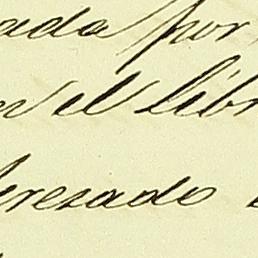 ada por
en el libr
teresado